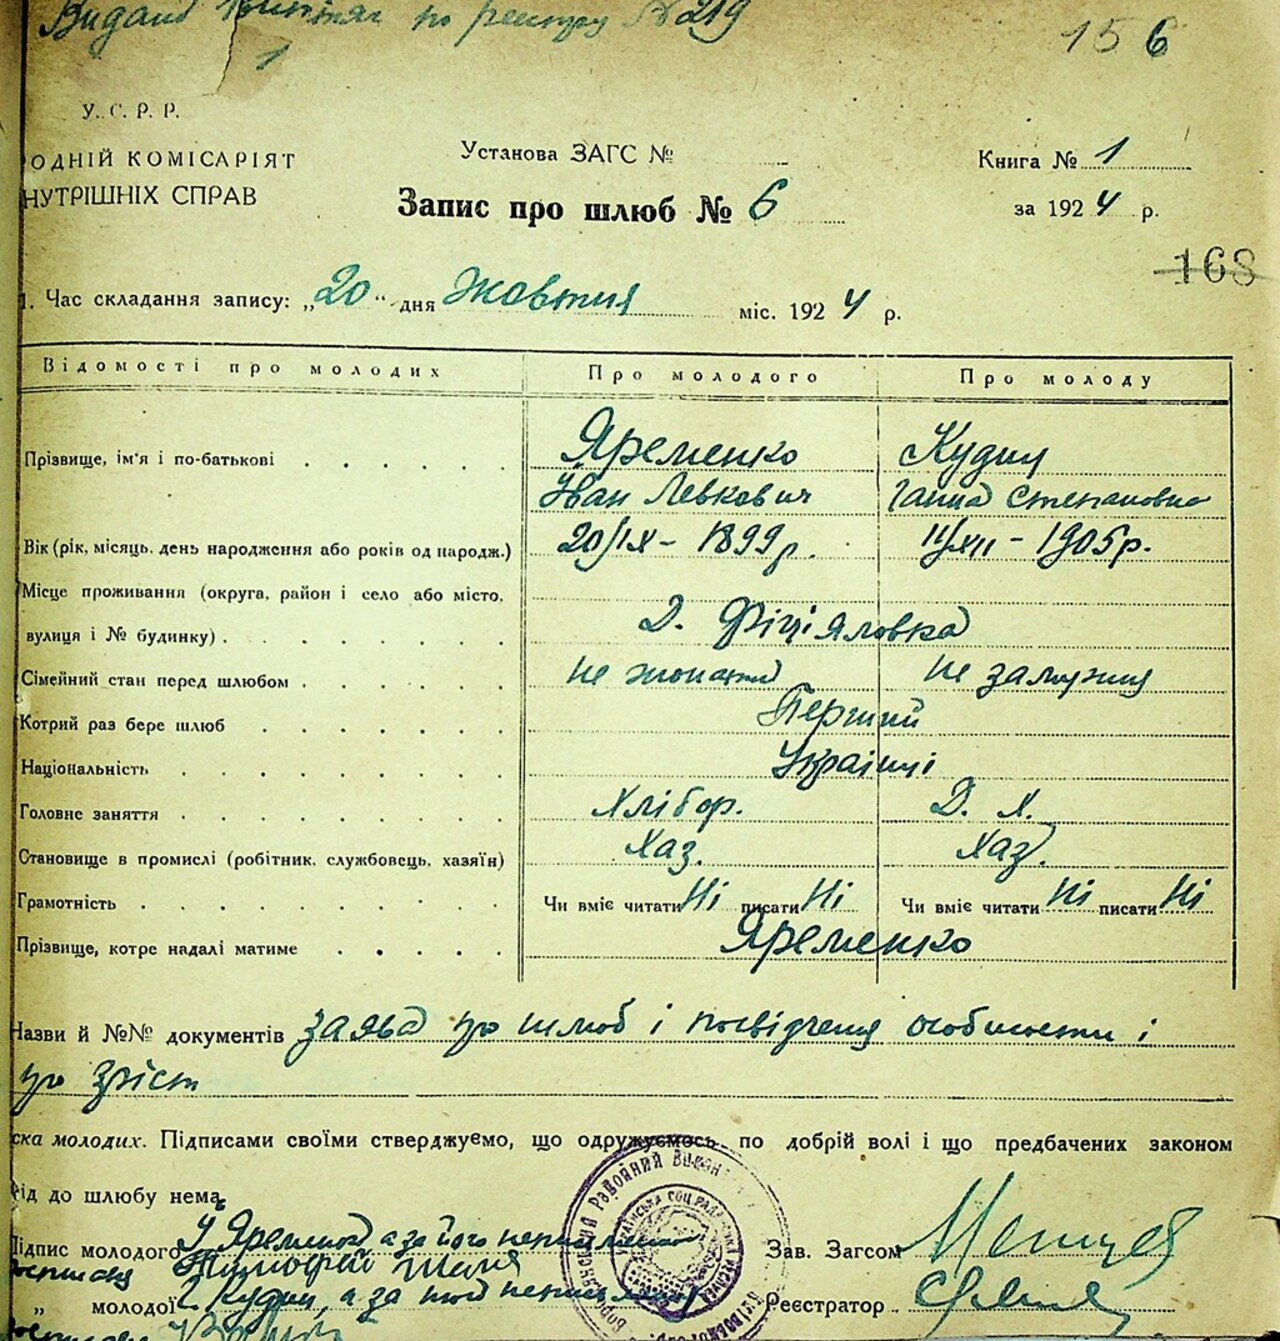 по реєстру № 219
1
156
У. С. Р. Р.
ОДНІЙ КОМІСАРІЯТ
НУТРІШНІХ СПРАВ
Установа ЗАГС №
Запис про шлюб № 6
Книга № 1
за 1924 р.
168
1. Час складання запису: „20“ дня Жовтня міс. 1924 р.
Відомості про молодих Про молодого Про молоду
Прізвище, ім'я і по-батькові Яременко Кудин
Іван Левкович Ганна Степановна
Вік (рік, місяць, день народження або років од народж.) 20/IX - 1899 р. 11/XII - 1905 р.
Місце проживання (округа, район і село або місто,
вулиця і № будинку) Д. Фіціяловка
Сімейний стан перед шлюбом не жонатий не замужня
Котрий раз бере шлюб Перший
Національність Українці
Головне заняття Хлібор. Д. Х.
Становище в промислі (робітник, службовець, хазяїн) Хаз. Хаз.
Грамотність Чи вміє читати Ні писати Ні Чи вміє читати Ні писати Ні
Прізвище, котре надалі матиме Яременко
Назви й №№ документів заява про шлюб і посвідчення особиности і
про зріст
ска молодих. Підписами своїми стверджуємо, що одружуємось по добрій волі і що предбачених законом
від до шлюбу нема
Підпис молодого Яременко а за його
Тимофій
„ молодої Кудин, а за
Зав. Загсом
Реєстратор
Районний Викон